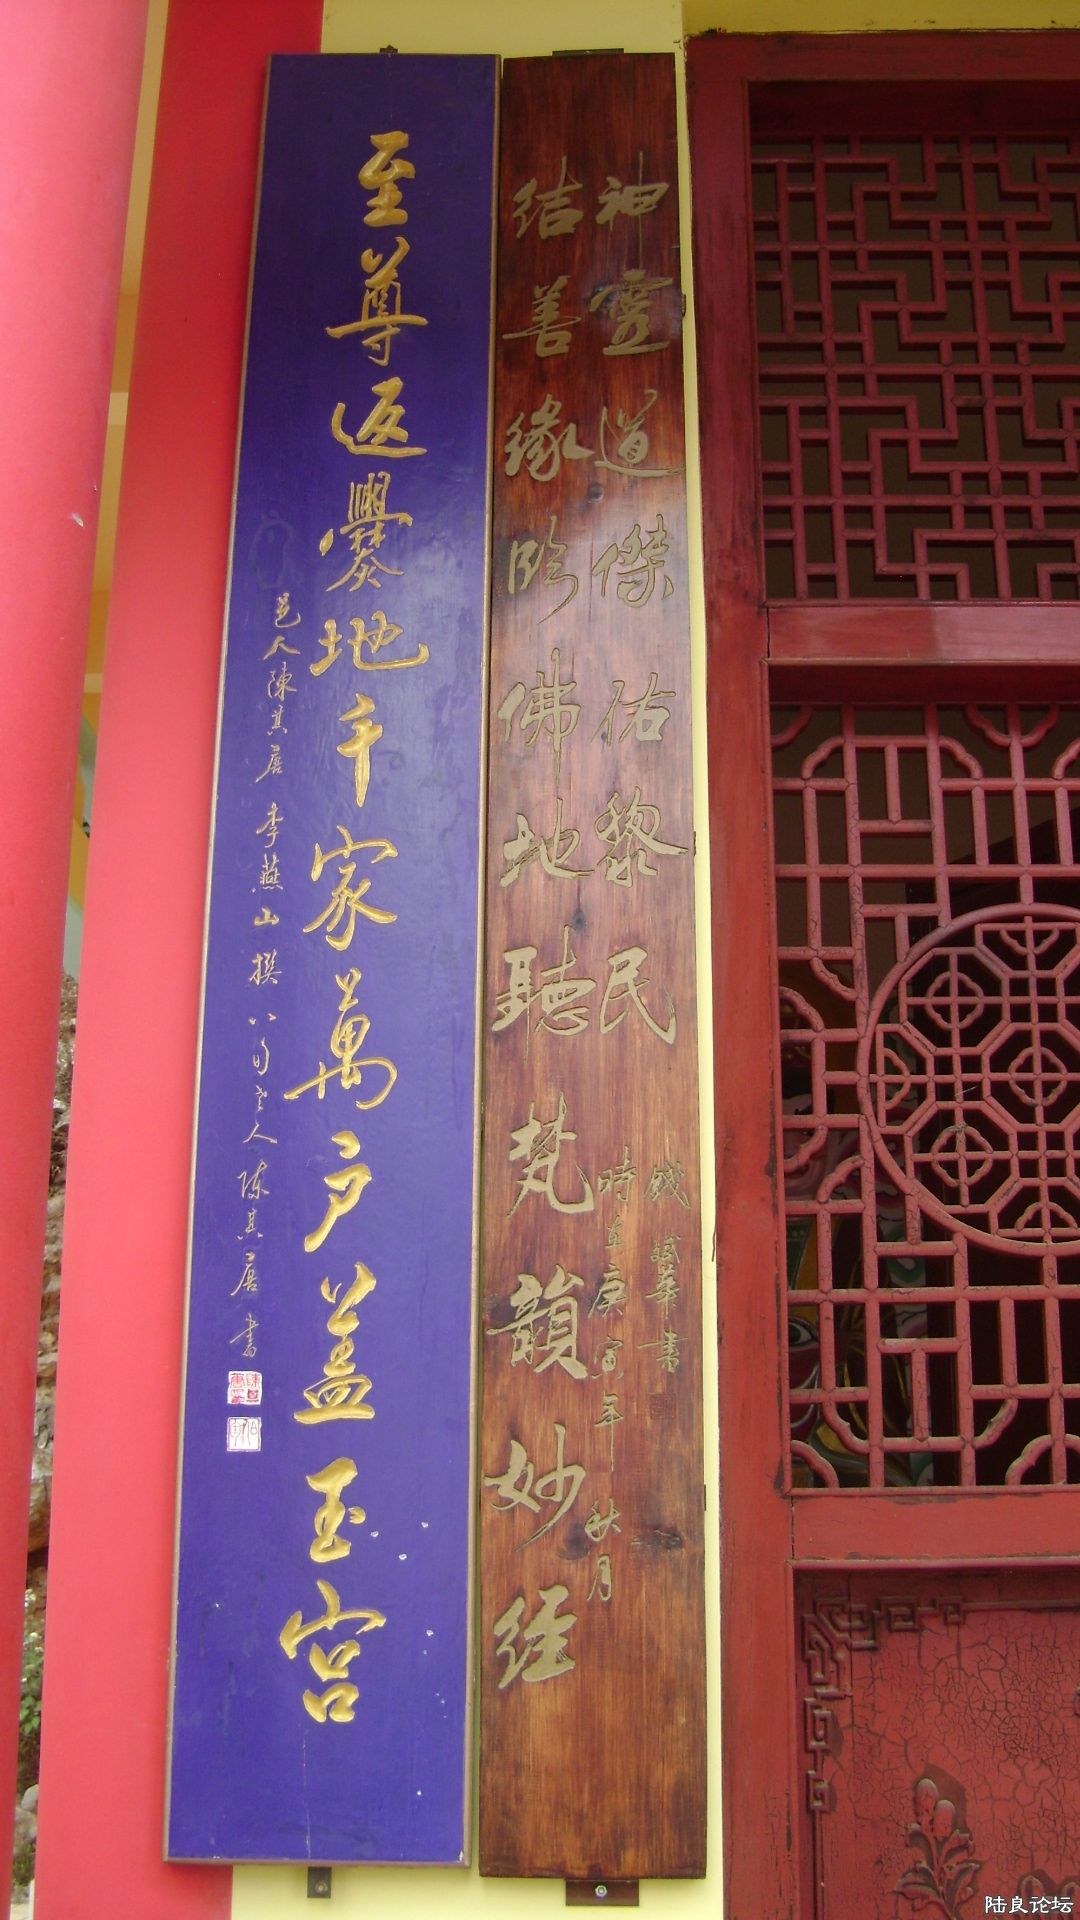 神靈道傑佑黎民
華書
结善緣臨佛地聽梵韻妙经
時在庚寅年秋月
至尊返爨地千家萬户蓋玉宫
邑人陳其 李燕山撰 八旬老人陈其 書
陆良论坛